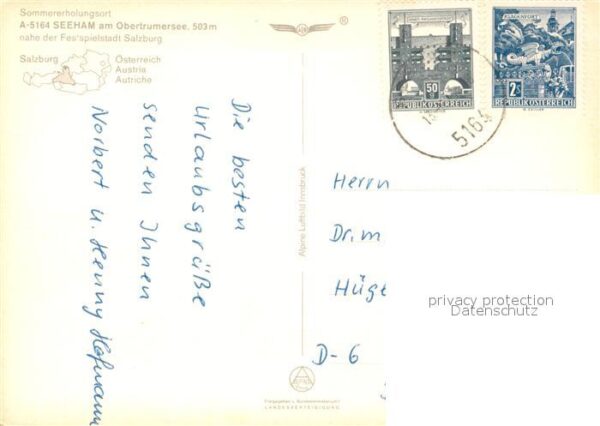 Sommererholungsort
A-5164 SEEHAM am Obertrumersee, 503 m
nahe der Festspielstadt Salzburg
Salzburg
Österreich
Austria
Autriche
Die besten
Urlaubsgrüße
senden Ihnen
Norbert u. Henny Hofmann
Alpine Luftbild Innsbruck
50
REPUBLIK ÖSTERREICH
KLAGENFURT
2S
REPUBLIK ÖSTERREICH
5164
Herrn
Dr. m
Hüge
D-6
privacy protection
Datenschutz
LANDESVERTEIDIGUNG